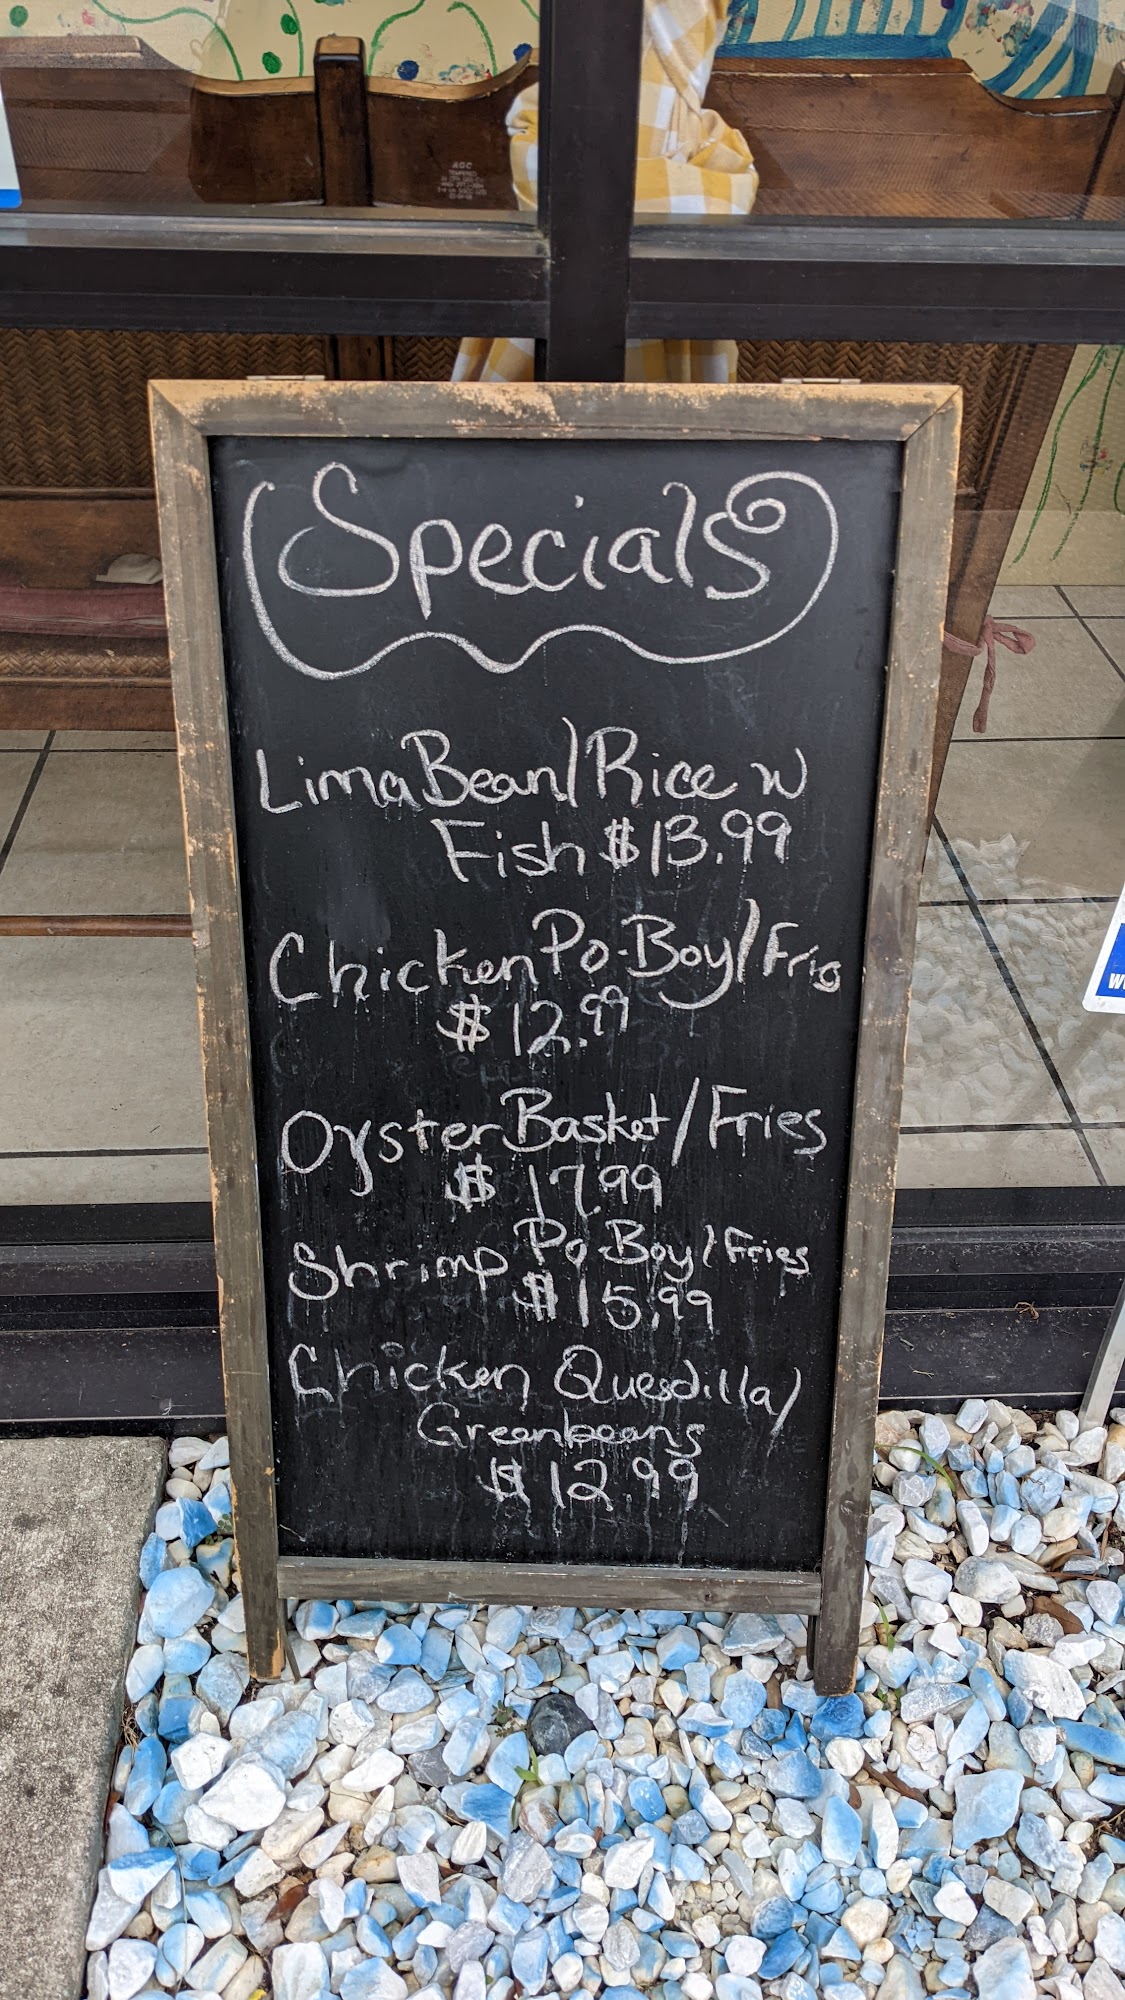 AGC
TEMPERED
Specials
Lima Bean/Rice w
Fish $13.99
Chicken Po-Boy/Fries
$12.99
Oyster Basket/Fries
$17.99
Shrimp Po-Boy/Fries
$15.99
Chicken Quesdilla/
Greenbeans
$12.99